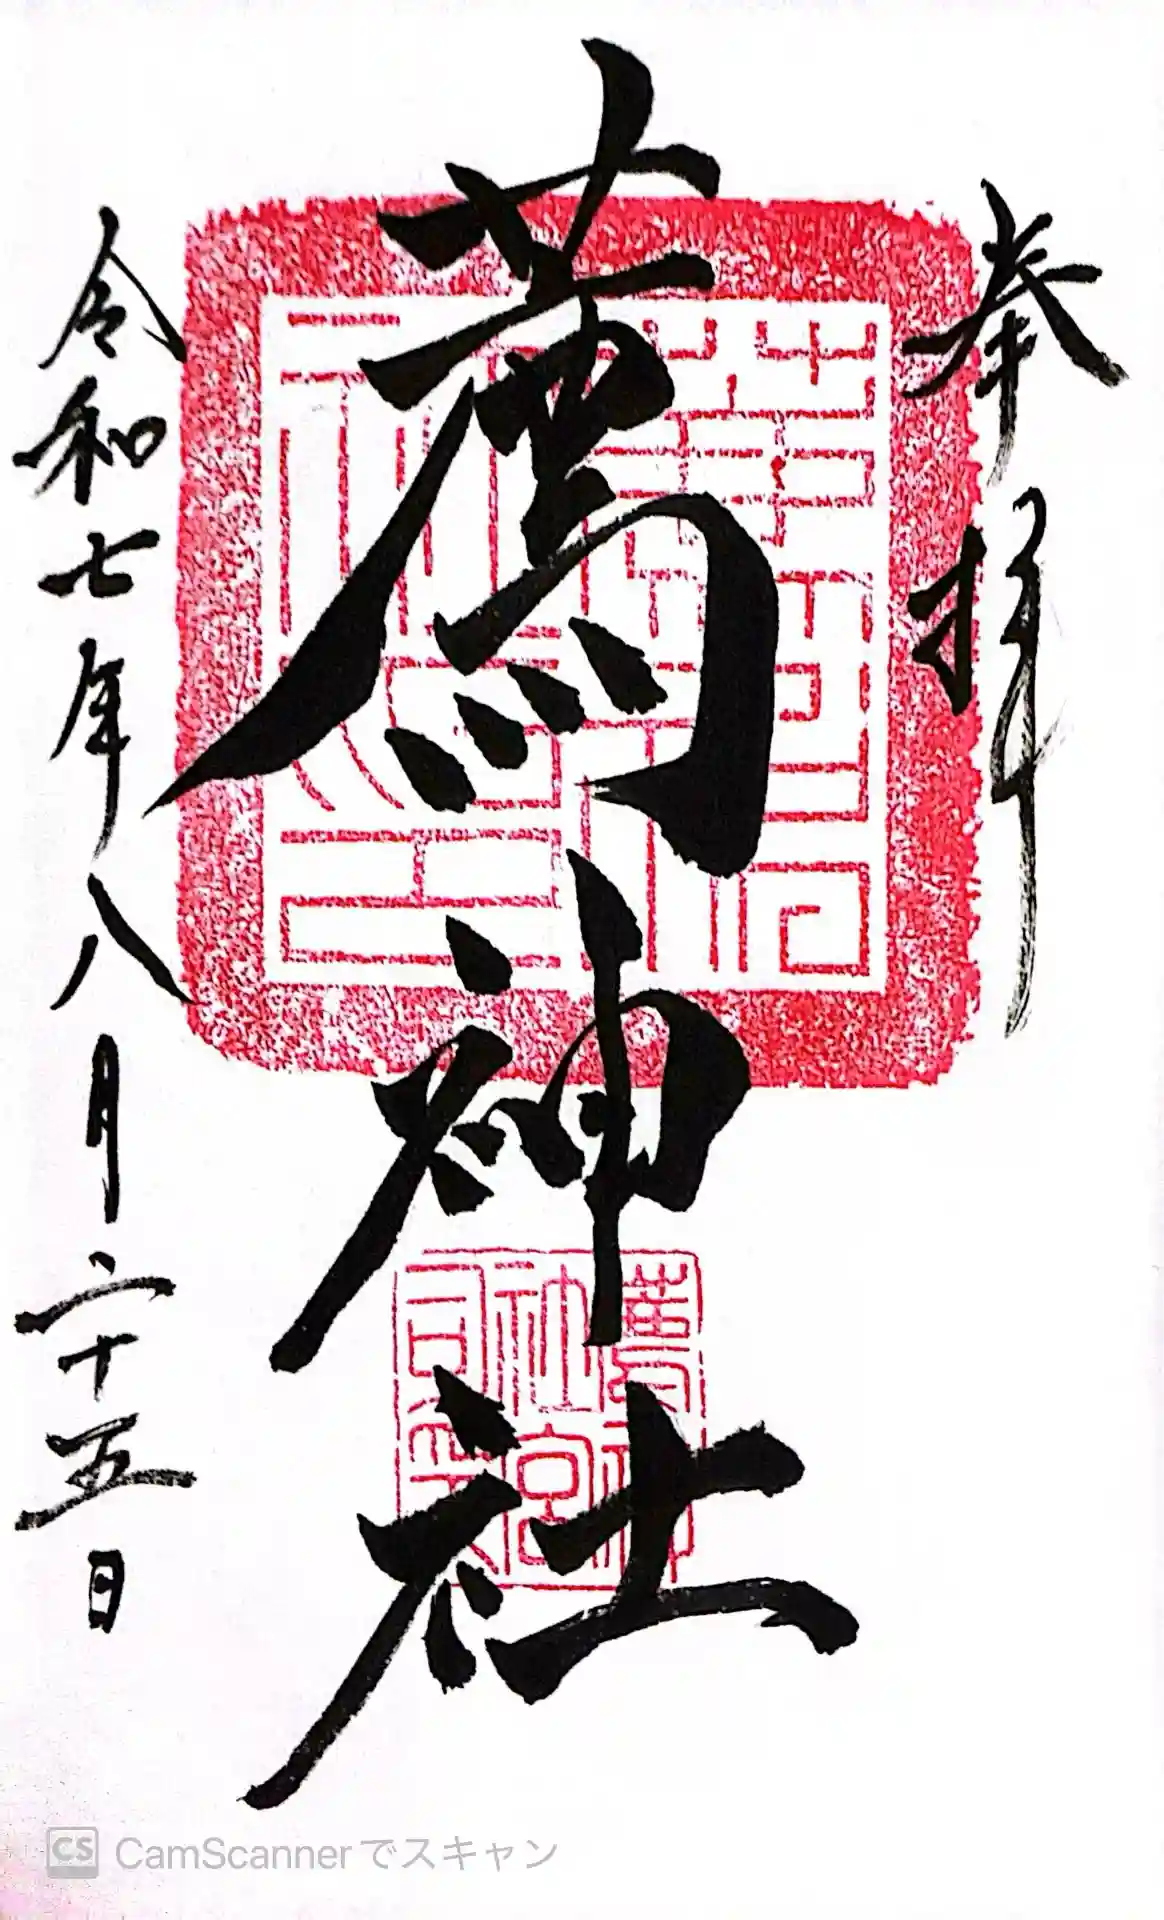 奉拝
薦神社
令和七年八月二十五日
薦神
社宮
司
CS CamScannerでスキャン